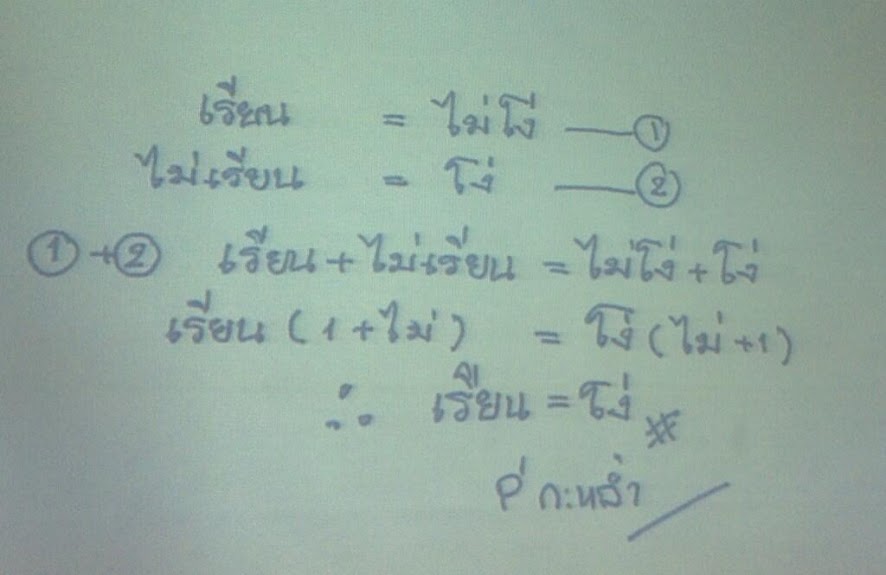 เรียน = ไม่โง่ — ①
ไม่เรียน = โง่ — ②
① + ② เรียน + ไม่เรียน = ไม่โง่ + โง่
เรียน ( 1 + ไม่ ) = โง่ ( ไม่ + 1 )
∴ เรียน = โง่ #
P' กะหล่ำ